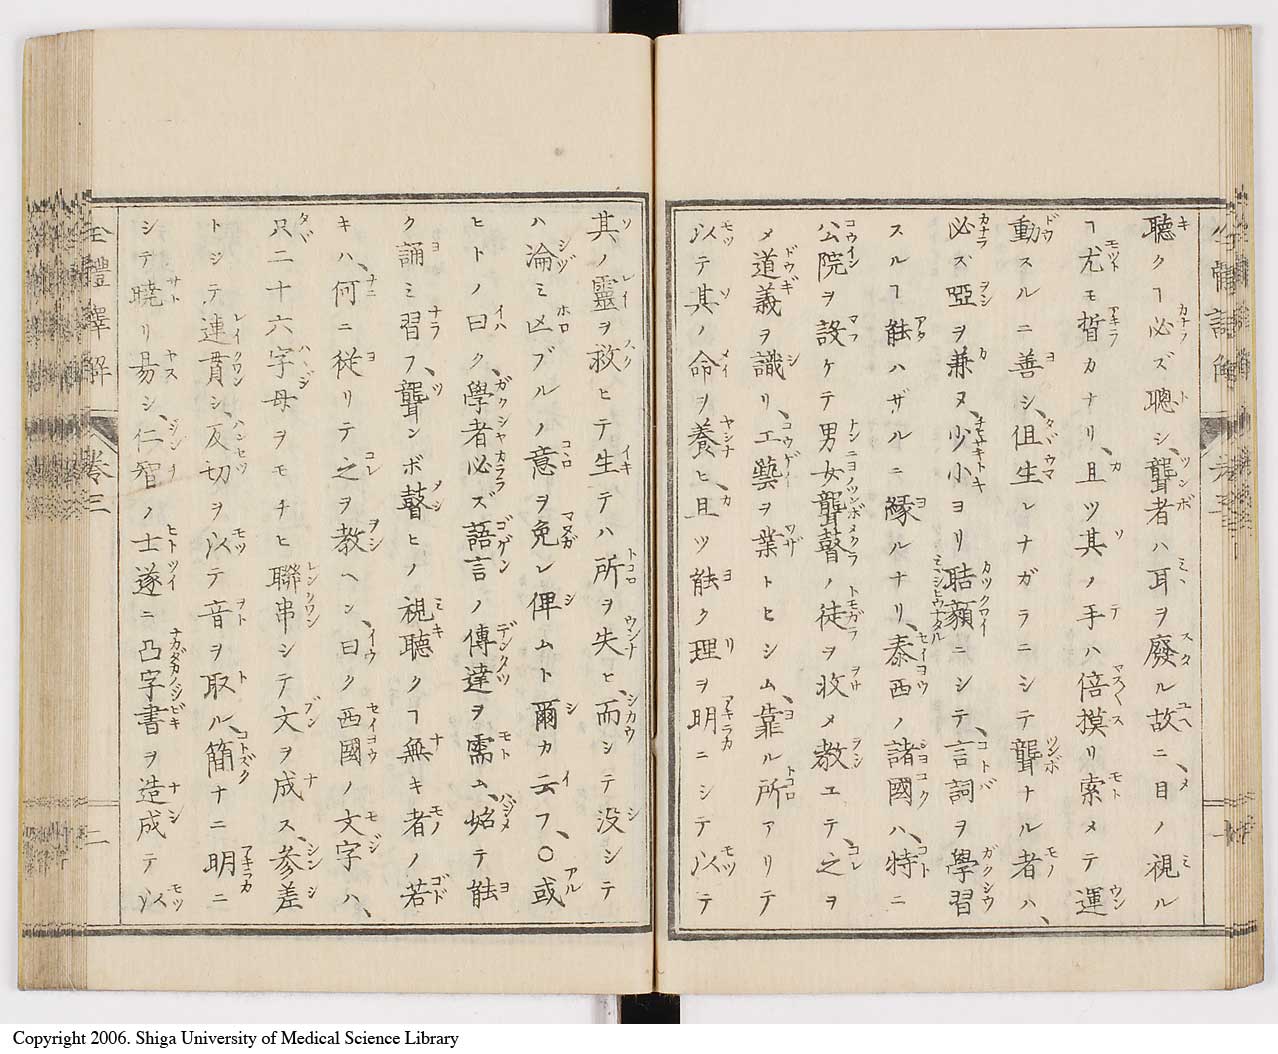 聴クヿ必ズ聰シ、聾者ハ耳ヲ廢ル故ニ、目ノ視ル
ヿ尤モ晢カナリ、且ツ其ノ手ハ倍摸リ索メテ運
動スルニ善シ、伹生レナガラニシテ聾ナル者ハ、
必ズ啞ヲ兼ヌ、少小ヨリ聐顡ニシテ、言詞ヲ學習
スルヿ能ハザルニ縁ルナリ、泰西ノ諸國ハ、特ニ
公院ヲ設ケテ男女聾瞽ノ徒ヲ收メ教エテ、之ヲ
メ道義ヲ識リ、工藝ヲ業トヒシム、靠ル所アリテ
以テ其ノ命ヲ養ヒ、且ツ能ク理ヲ明ニシテ以テ
其ノ靈ヲ救ヒテ生テハ所ヲ失ヒ、而シテ没シテ
ハ淪ミ凶ブルノ意ヲ免レ俾ムト爾カ云フ、〇或
ヒトノ曰ク、學者必ズ語言ノ傳達ヲ需ム、始テ能
ク誦ミ習フ、聾ンボ瞽ヒノ視聴クヿ無キ者ノ若
キハ、何ニ従リテ之ヲ教ヘン、曰ク西國ノ文字ハ、
只二十六字母ヲモチヒ聯串シテ文ヲ成ス、參差
トシテ連貫シ、反切ヲ以テ音ヲ取ル、簡ナニ明ニ
シテ曉リ易シ、仁智ノ士遂ニ凸字書ヲ造成テ以
全體譯解
卷三
二
Copyright 2006. Shiga University of Medical Science Library